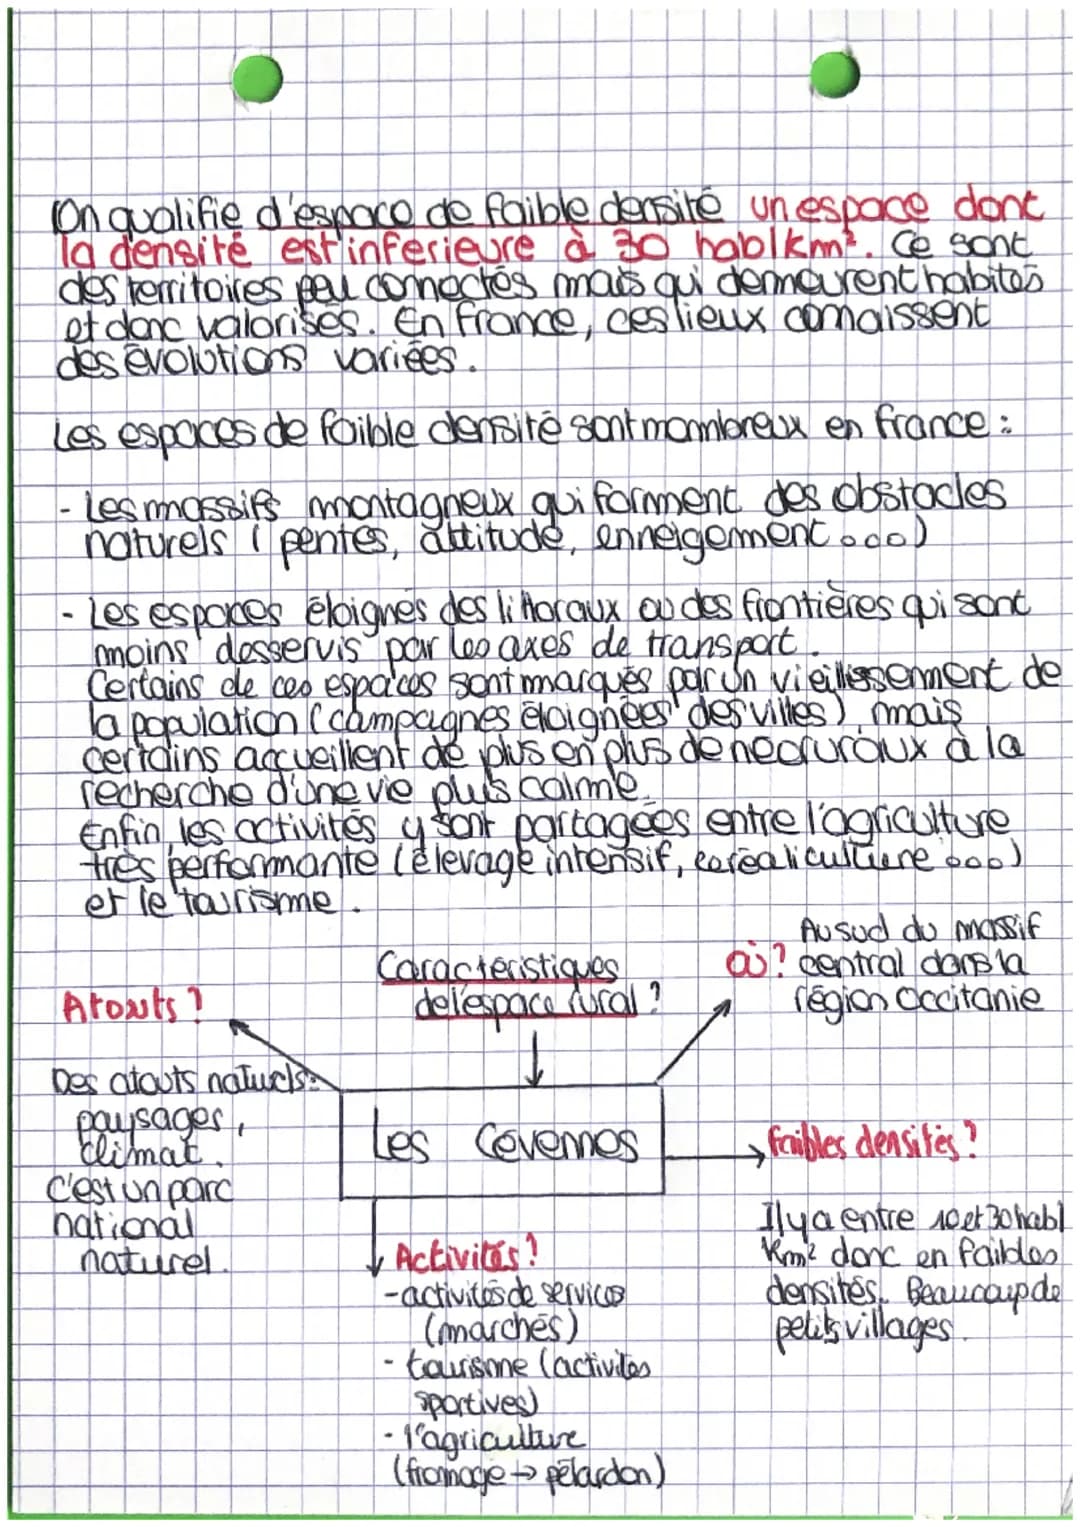 On qualifie d'espace de faible densité un espace dont
la densité est inferieure à 30 hab/km². Ce sont
des territoires peu connectés mais qui demeurent habités
et donc valorisés. En France, ces lieux connaissent
des évolutions variées.
Les espaces de faible densité sont nombreux en france :
- Les massifs montagneux qui forment des obstacles
naturels ( pentes, altitude, enneigement ...)
- Les espaces éloignés des littoraux ou des frontières qui sont
moins desservis par les axes de transport.
Certains de ces espaces sont marqués par un vieillissement de
la population (campagnes éloignées des villes), mais
certains accueillent de plus en plus de neoruraux à la
recherche d'une vie plus calme.
Enfin, les activités y sont partagées entre l'agriculture
très performante (élevage intensif, céréaliculture ...)
et le tourisme.
Caractéristiques
de l'espace rural ?
Atouts ?
Des atouts naturels:
paysages,
climat.
C'est un parc
national
naturel.
où ? Au sud du massif
central dans la
région Occitanie
Les Cévennes
faibles densités ?
Il y a entre 10 et 30 hab/
Km² donc en faibles
densités. Beaucoup de
petits villages.
Activités ?
- activités de services
(marchés)
- tourisme (activités
sportives)
- l'agriculture
(fromage → pélardon)